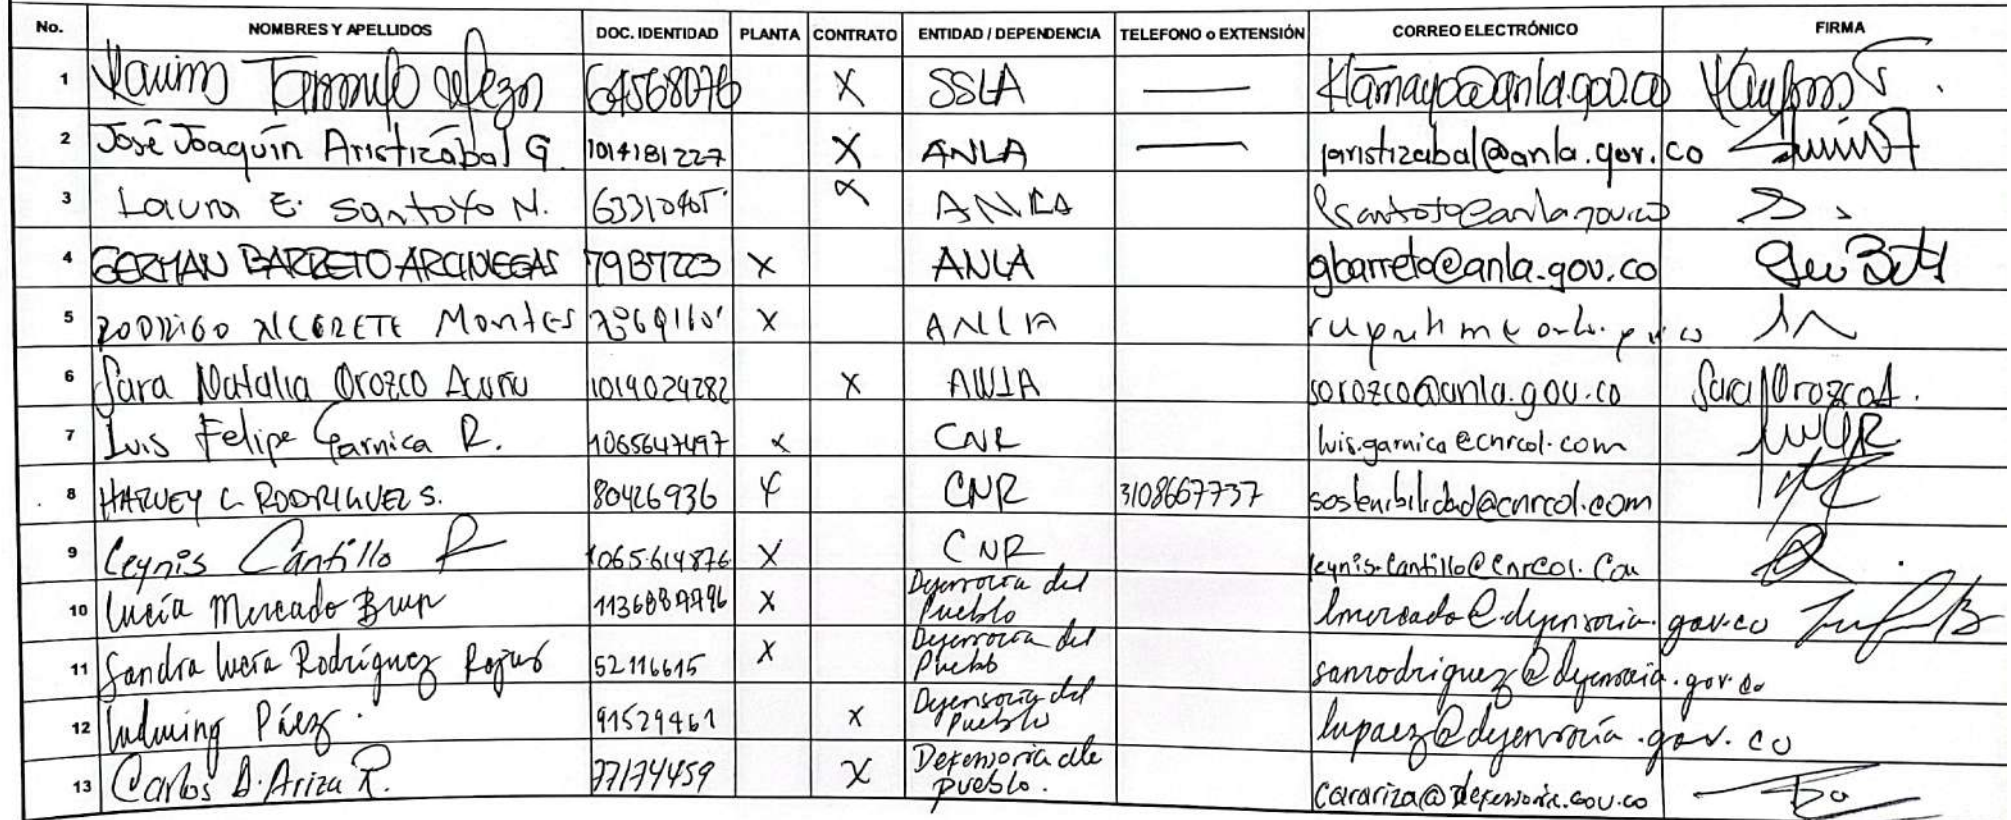 No. NOMBRES Y APELLIDOS DOC. IDENTIDAD PLANTA CONTRATO ENTIDAD / DEPENDENCIA TELEFONO o EXTENSIÓN CORREO ELECTRÓNICO FIRMA
1 X SSLA — ktamayo@anla.gov.co
2 José Joaquín Aristizábal G. 1014181227 X ANLA — jaristizabal@anla.gov.co
3 Laura E. Santoyo N. X ANLA
4 GERMAN BARRETO ARCINIEGAS X ANLA gbarreto@anla.gov.co
5 RODRIGO Montes X ANLA
6 Sara Natalia Orozco Acuña 1019024282 X ANLA sorozco@anla.gov.co Sara Orozco A.
7 Luis Felipe Garnica R. 1065647497 x CNR luis.garnica@cnrcol.com
8 HARVEY C RODRIGUEZ S. 80426936 X CNR 3108667737 sostenibilidad@cnrcol.com
9 Leynis Cantillo R 1065.614876 X CNR leynis.cantillo@cnrcol.com
10 Lucía Mercado X Defensoría del
Pueblo lmercado@defensoria.gov.co
11 Sandra Lucía Rodríguez Rojas 52116615 X Defensoría del
Pueblo sanrodriguez@defensoria.gov.co
12 Ludwing Páez. 91529461 X Defensoría del
Pueblo lupaez@defensoría.gov.co
13 Carlos A. Ariza R. 77174459 X Defensoria del
Pueblo. carariza@defensoria.gov.co